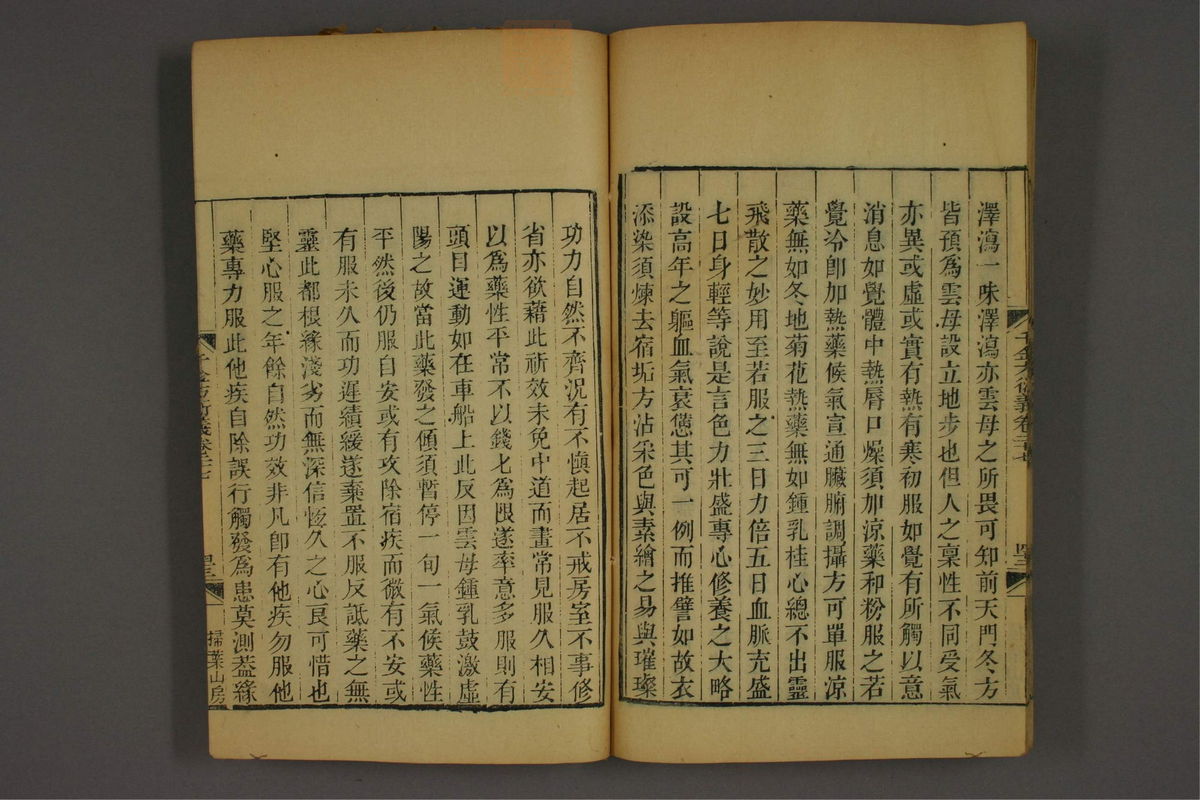 澤瀉一味澤瀉亦雲母之所畏可知前天門冬方
皆預爲雲母設立地步也但人之稟性不同受氣
亦異或虛或實有熱有寒初服如覺有所觸以意
消息如覺體中熱唇口燥須加涼藥和粉服之若
覺冷卽加熱藥候氣宣通臟腑調攝方可單服涼
藥無如冬地菊花熱藥無如鍾乳桂心總不出靈
飛散之妙用至若服之三日力倍五日血脈充盛
七日身輕等說是言色力壯盛專心修養之大略
設高年之軀血氣衰憊其可一例而推譬如故衣
添染須煉去宿垢方沾采色與素繪之易與璀璨
千金方衍義卷二十七
功力自然不齊況有不愼起居不戒房室不事修
省亦欲藉此祈效未免中道而畫常見服久相安
以爲藥性平常不以錢匕爲限遂率意多服則有
頭目運動如在車船上此反因雲母鍾乳鼓激虛
陽之故當此藥發之傾須暫停一旬一氣候藥性
平然後仍服自安或有攻除宿疾而微有不安或
有服未久而功遲績緩遂棄置不服反詆藥之無
靈此都根緣淺劣而無深信恆久之心良可惜也
堅心服之年餘自然功效非凡卽有他疾勿服他
藥專力服此他疾自除誤行觸發爲患莫測葢緣
掃葉山房